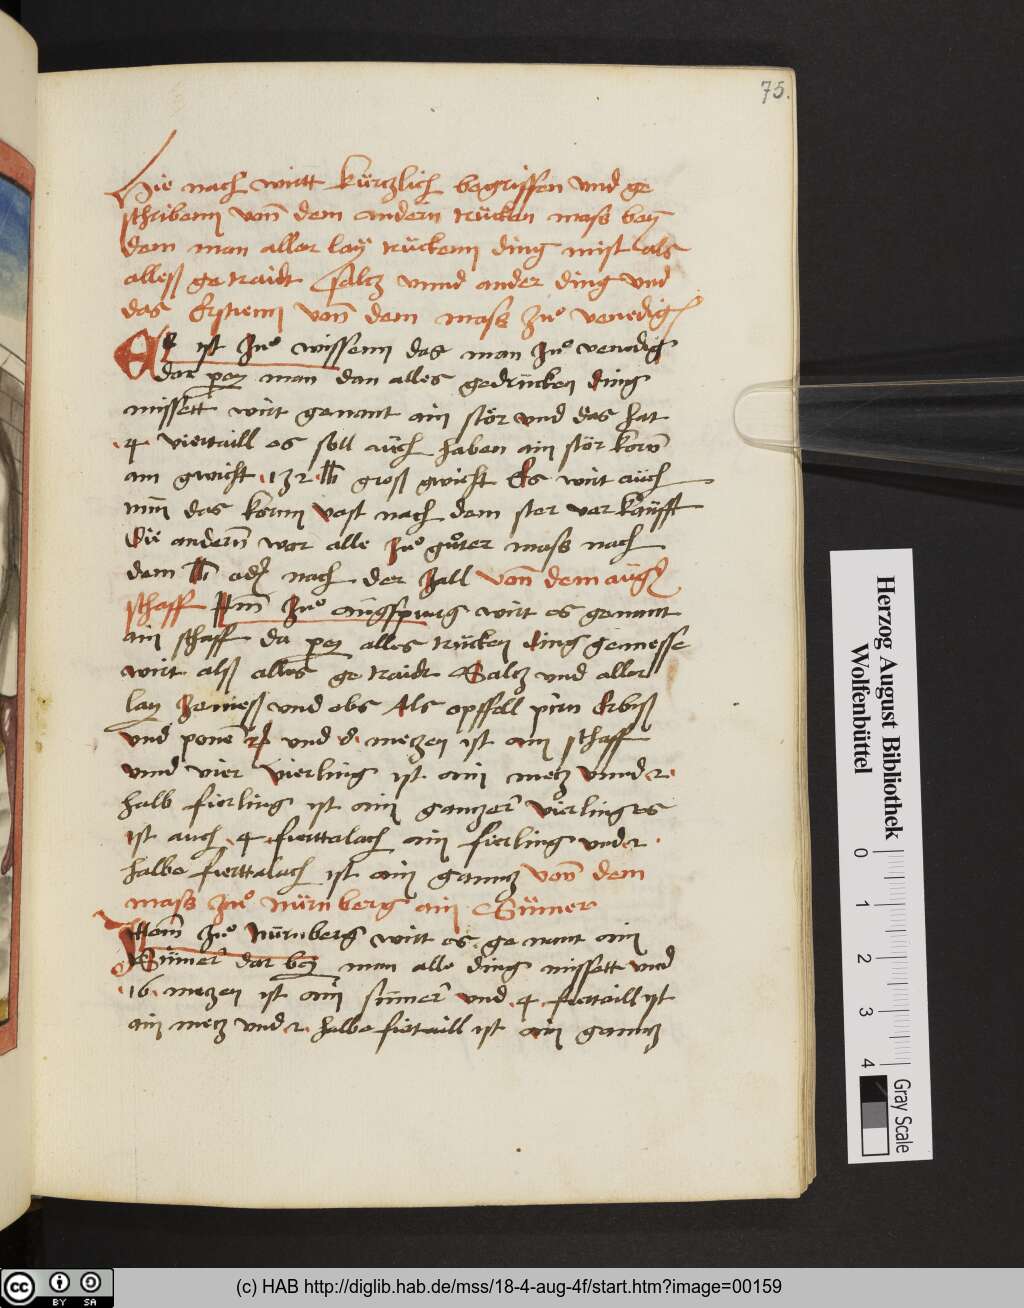 75.
Hie nach wirtt kürtzlich begriffen vnd ge
schribenn vonn dem andern trücken mass bey
dem man aller lay trückenn ding mist als
alleß getraidt saltz vnnd ander ding vnd
das Erstenn vonn dem mass Zuo venedig
Es ist Zuo wissenn das man Zuo venedig
dar pey man dan alles gedrücken ding
missett wirt genant ain stör vnd das hat
.4. viertaill es soll auch haben ain stör korn
am gwicht .132. lb groß gwicht Es wirt auch
nun das korn vast nach dem ster verkaufft
Die andern war alle Zuo guoter mass nach
dem lb oder nach der Zall vonn dem augs
schaff Item Zuo augspurg wirt es genant
ain schaff da pey alles trücken ding gemesse
wirt alß alles getraidt Saltz vnd aller
lay Zemeß vnd obs Als opffell pirn Erbiß
vnd ponen vnd 8. metzen ist ain schaff
vnnd vier vierling ist ain metz vnnd 2.
halb fierling ist ain gantzer vierling es
ist auch .4. fierttalach ain fierling vnd 2.
halbe fierttalach ist ain gantz vonn dem
mass Zuo nürnberg ain Sümer
Item Zuo Nürnberg wirt es genant ain
Sümer dar bey man alle ding missett vnd
.16. metzen ist ain sumer vnd .4. fiertaill ist
ain metz vnd 2. halbe fiertaill ist ain gantz
Herzog August Bibliothek
Wolfenbüttel
0 1 2 3 4
Gray Scale
cc BY SA
(c) HAB http://diglib.hab.de/mss/18-4-aug-4f/start.htm?image=00159